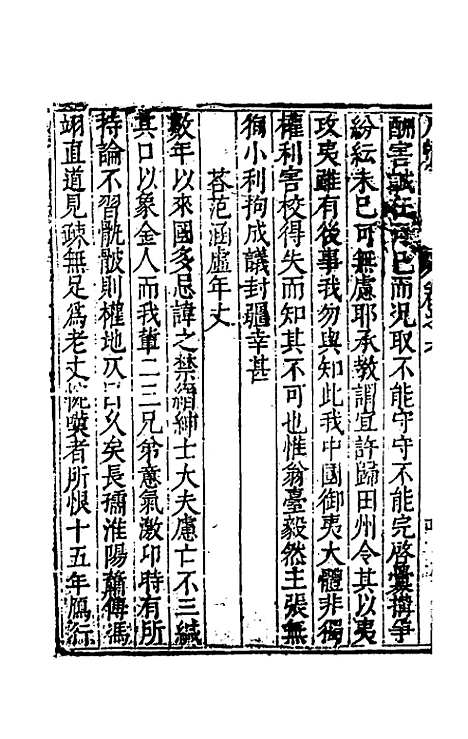 酬害誠在可已而況取不能守守不能完啓釁搆爭
紛紜未已可無慮耶承教謂宜許歸田州令其以夷
攻夷雖有後事我勿與知此我中國御夷大體非獨
權利害校得失而知其不可也惟翁臺毅然主張無
狥小利拘成議封疆幸甚
荅范涵虛年丈
數年以來國多忌諱之禁縉紳士大夫慮亡不三緘
其口以象金人而我輩二三兄弟意氣激卬時有所
持論不習骫骳則權地久矣長孺淮陽蕭傅馮
翊直道見疎無足爲老丈嘆者所恨十五年鴈行